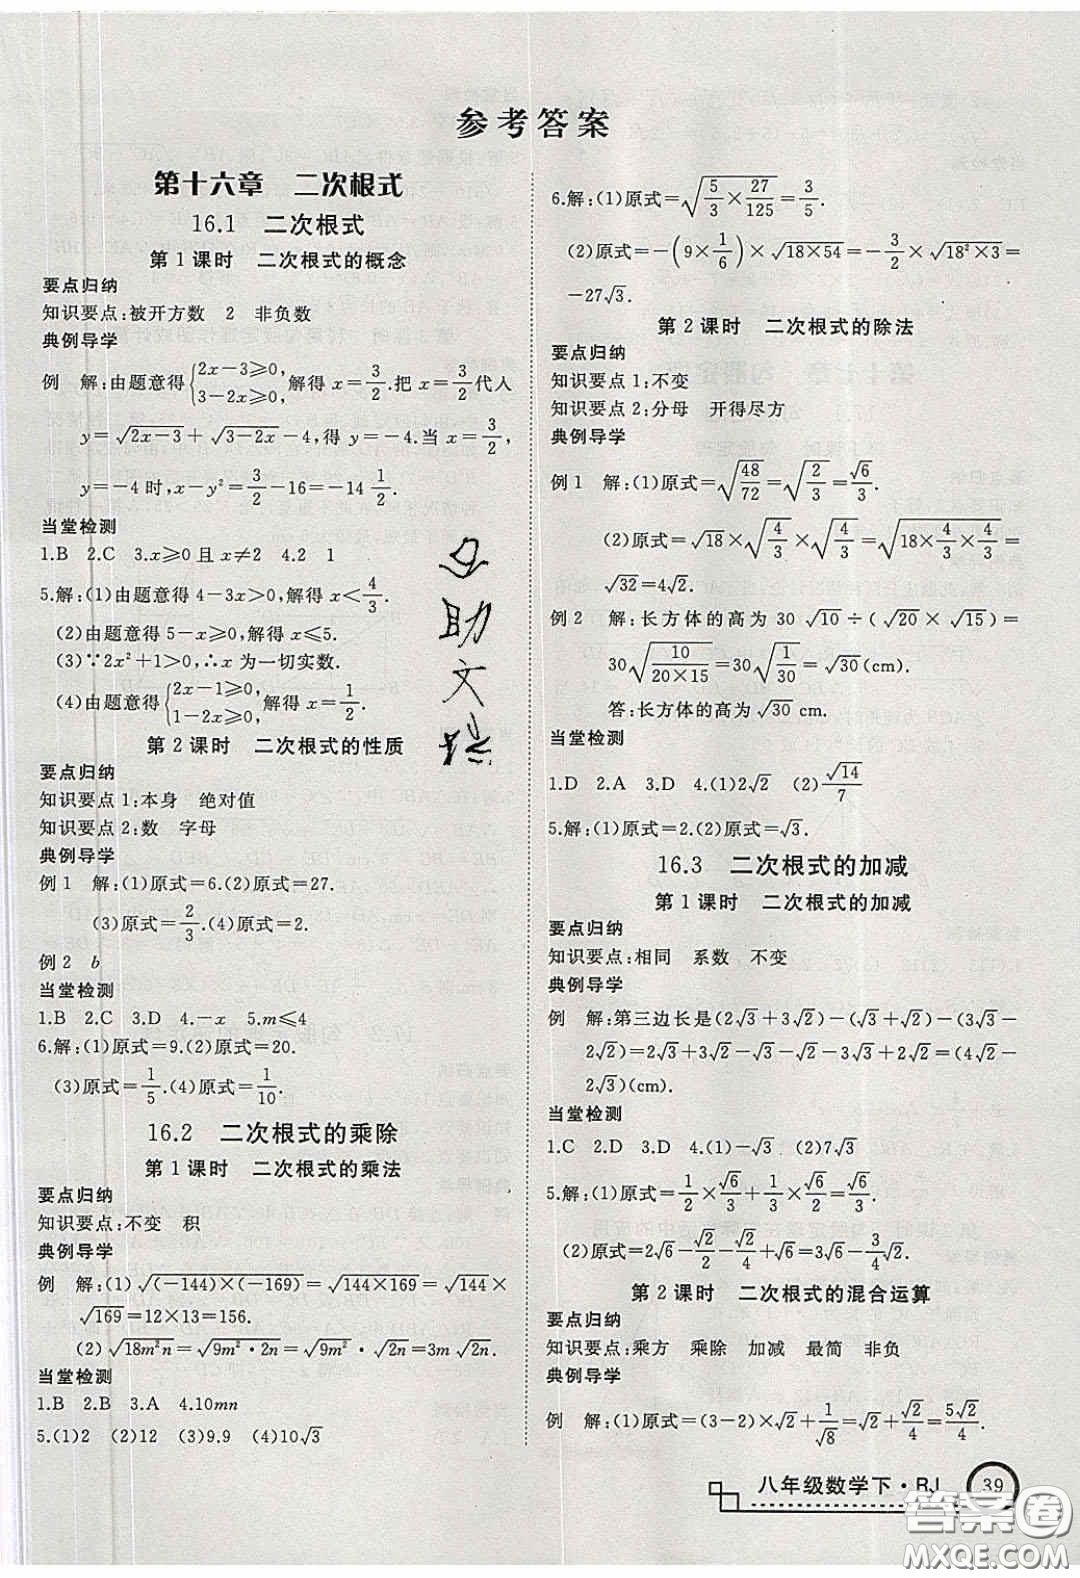 参考答案
第十六章 二次根式
16.1 二次根式
第1课时 二次根式的概念
要点归纳
知识要点:被开方数 2 非负数
典例导学
例 解:由题意得{2x-3≥0, 3-2x≥0, 解得 x=3/2.把 x=3/2代人
y=√(2x-3)+√(3-2x)-4,得 y=-4.当 x=3/2,
y=-4时,x-y²=3/2-16=-14 1/2.
当堂检测
1.B 2.C 3.x≥0且 x≠2 4.2 1
5.解:(1)由题意得 4-3x>0,解得 x<4/3.
(2)由题意得 5-x≥0,解得 x≤5.
(3)∵2x²+1>0,∴x 为一切实数.
(4)由题意得{2x-1≥0, 1-2x≥0, 解得 x=1/2.
第2课时 二次根式的性质
要点归纳
知识要点1:本身 绝对值
知识要点2:数 字母
典例导学
例1 解:(1)原式=6.(2)原式=27.
(3)原式=2/3.(4)原式=2.
例2 b
当堂检测
1.B 2.C 3.D 4.-x 5.m≤4
6.解:(1)原式=9.(2)原式=20.
(3)原式=1/5.(4)原式=1/10.
16.2 二次根式的乘除
第1课时 二次根式的乘法
要点归纳
知识要点:不变 积
典例导学
例 解:(1)√((-144)×(-169))=√(144×169)=√144×
√169=12×13=156.
(2)√(18m²n)=√(9m²·2n)=√(9m²)·√(2n)=3m√(2n).
当堂检测
1.B 2.B 3.A 4.10mn
5.(1)2 (2)12 (3)9.9 (4)10√3
6.解:(1)原式=√(5/3×27/125)=3/5.
(2)原式=-(9×1/6)×√(18×54)=-3/2×√(18²×3)=
-27√3.
第2课时 二次根式的除法
要点归纳
知识要点1:不变
知识要点2:分母 开得尽方
典例导学
例1 解:(1)原式=√(48/72)=√(2/3)=√6/3.
(2)原式=√18×√(4/3)×√(4/3)=√(18×4/3×4/3)=
√32=4√2.
例2 解:长方体的高为 30√10÷(√20×√15)=
30√(10/(20×15))=30√(1/30)=√30(cm).
答:长方体的高为√30 cm.
当堂检测
1.D 2.A 3.D 4.(1)2√2 (2)√14/7
5.解:(1)原式=2.(2)原式=√3.
16.3 二次根式的加减
第1课时 二次根式的加减
要点归纳
知识要点:相同 系数 不变
典例导学
例 解:第三边长是(2√3+3√2)-(√3+√2)-(3√3-
2√2)=2√3+3√2-√3-√2-3√3+2√2=(4√2-
2√3)(cm).
当堂检测
1.C 2.D 3.D 4.(1)-√3 (2)7√3
5.解:(1)原式=1/2×√6/3+1/3×√6/2=√6/3.
(2)原式=2√6-√2/2-√2/4+√6=3√6-3/4√2.
第2课时 二次根式的混合运算
要点归纳
知识要点:乘方 乘除 加减 最简 非负
典例导学
例 解:(1)原式=(3-2)×√2+1/√8=√2+√2/4=5√2/4.
八年级数学下·RJ 39
答案圈
MXQE.COM